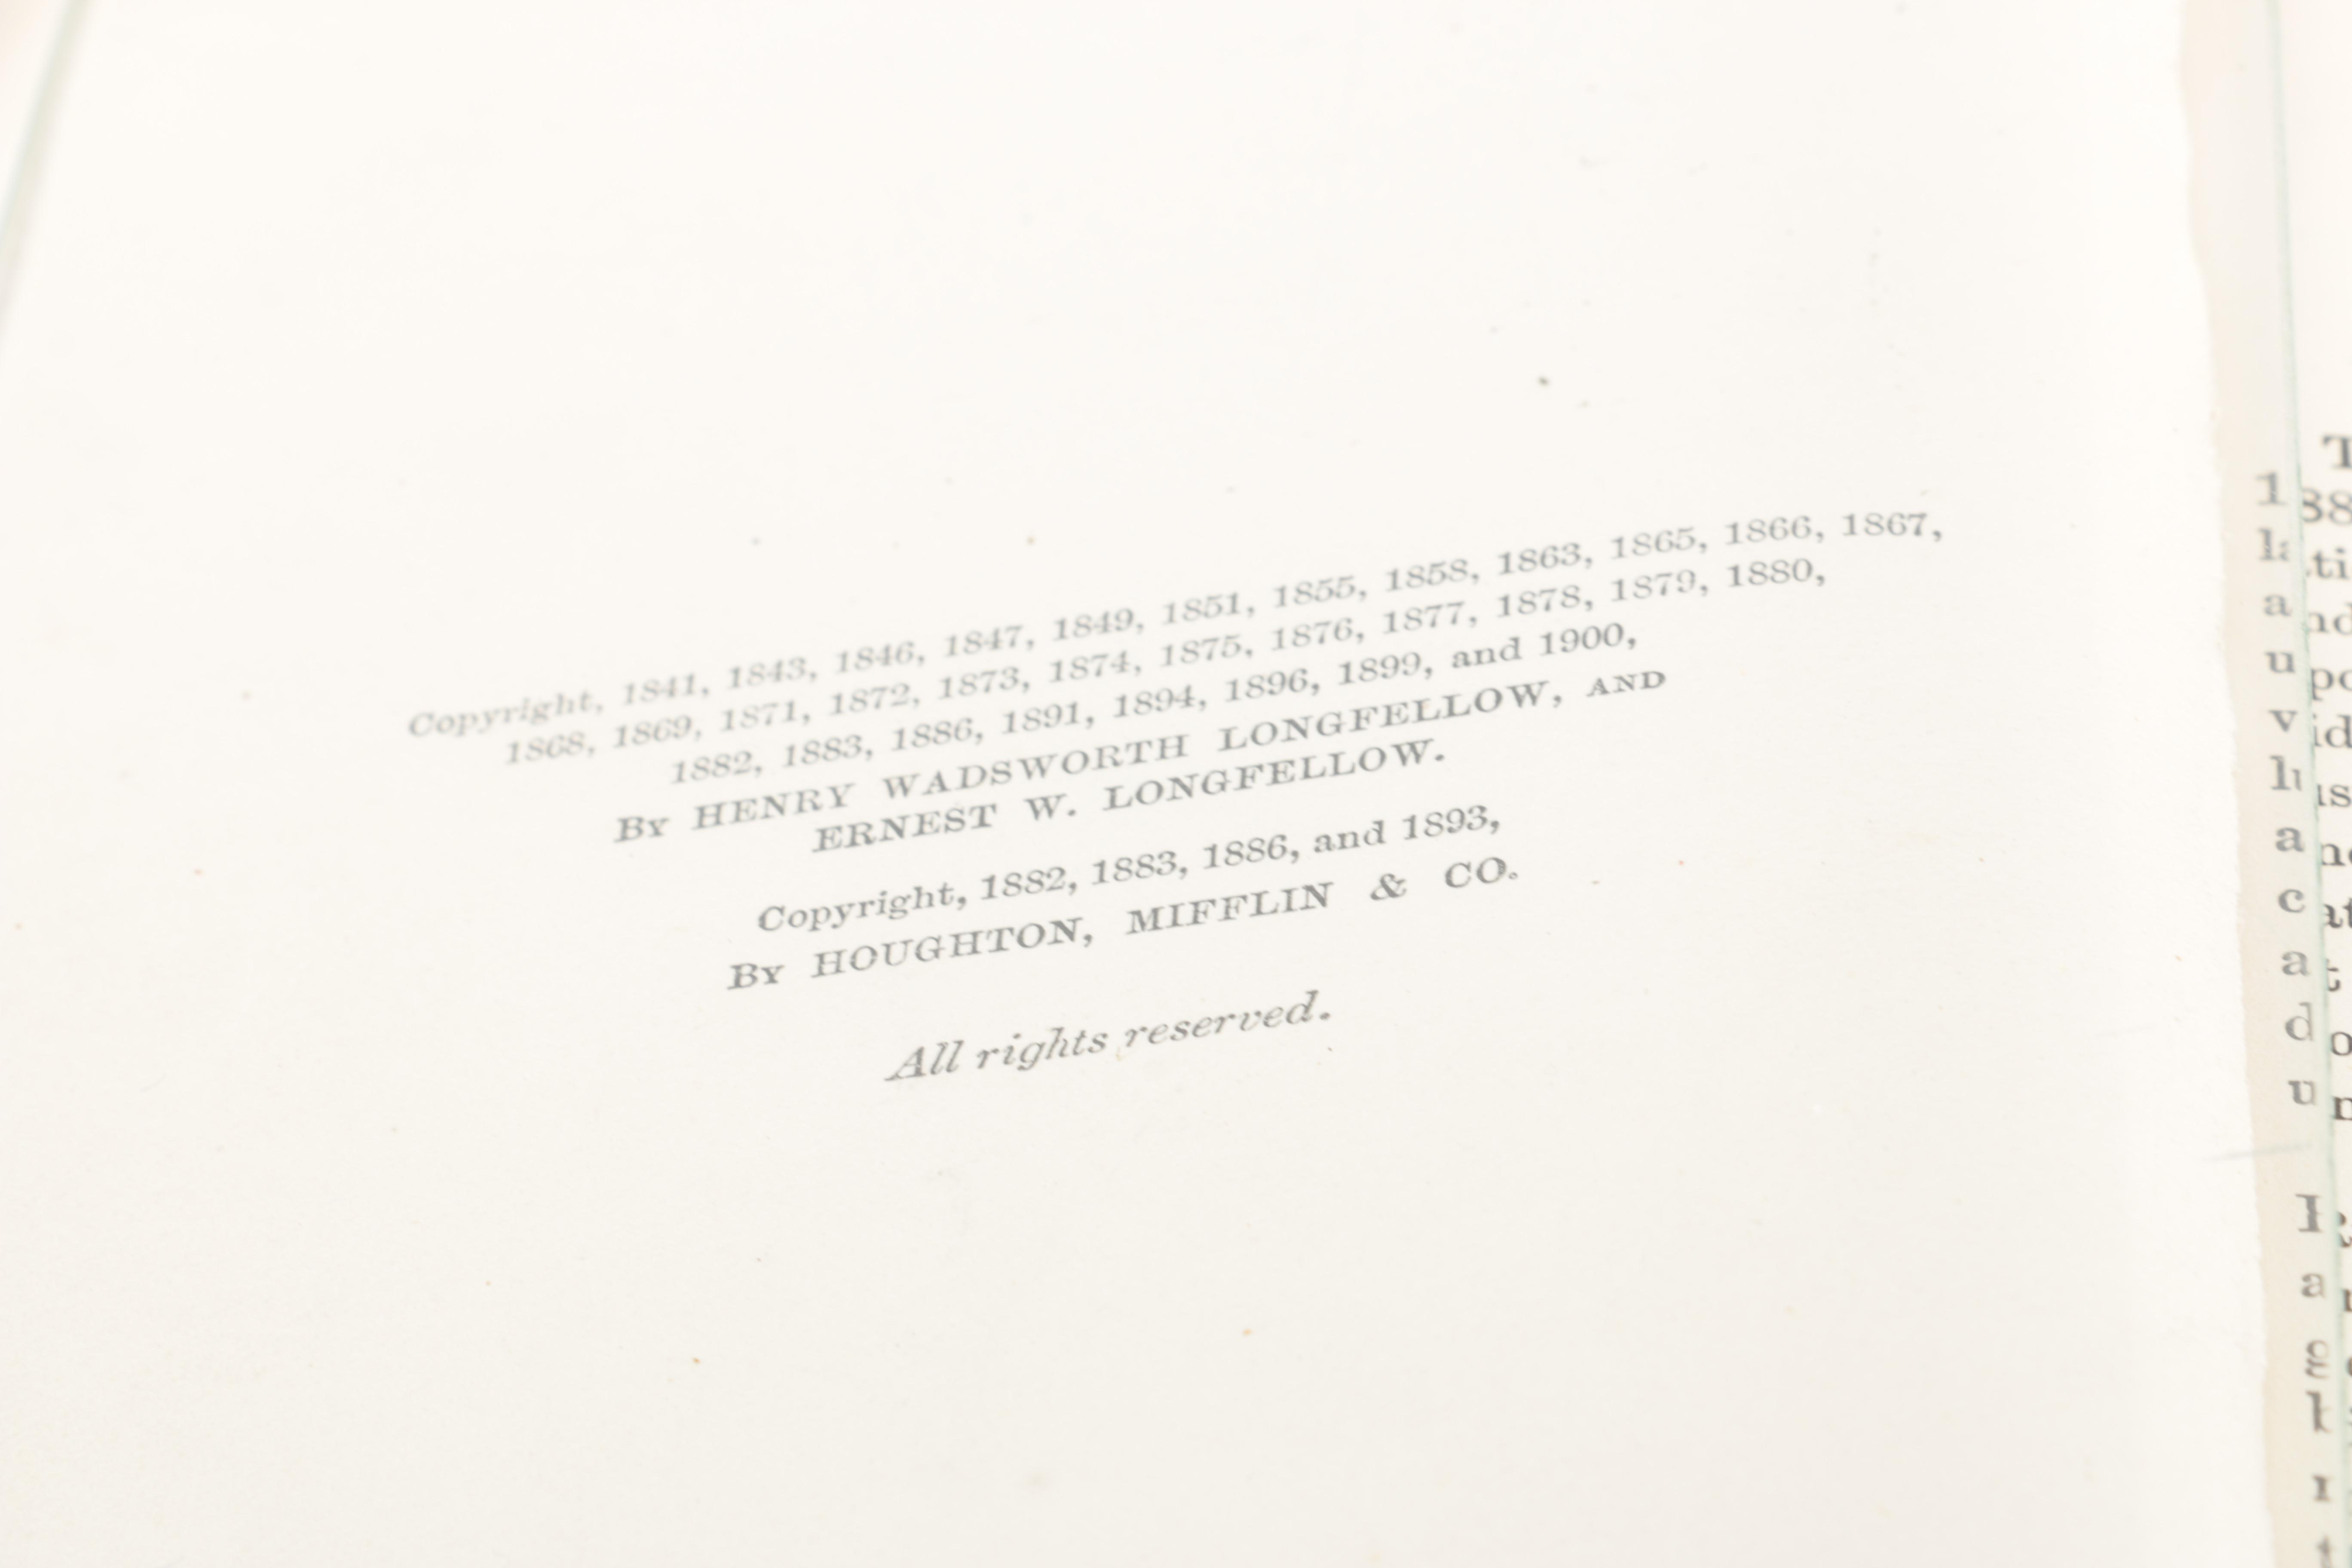 Copyright, 1841, 1843, 1846, 1847, 1849, 1851, 1855, 1858, 1863, 1865, 1866, 1867,
1868, 1869, 1871, 1872, 1873, 1874, 1875, 1876, 1877, 1878, 1879, 1880,
1882, 1883, 1886, 1891, 1894, 1896, 1899, and 1900,
By HENRY WADSWORTH LONGFELLOW, AND
ERNEST W. LONGFELLOW.
Copyright, 1882, 1883, 1886, and 1893,
By HOUGHTON, MIFFLIN & CO.
All rights reserved.